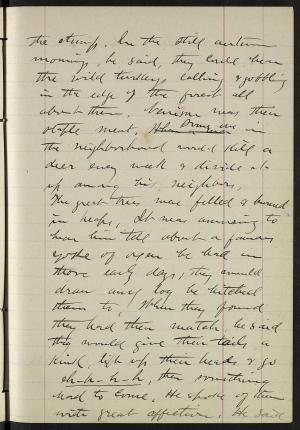 the stumps. In the still autumn
mornings, he said, they could hear
the wild turkeys calling & gobbling
in the edge of the forest all
about them. Venison was their
staple meat. Some one in
the neighborhood would kill a
deer every week & divide it
up among his neighbors.
The great trees were felled & burned
in heaps. It was amusing to
hear him tell about a famous
yoke of oxen he had in
those early days; they would
draw any log he hitched
them to. When they found
they had their match, he said
they would give their tails a
kink, lift up their heads & go
eh-h-h-h, then something
had to come. He spoke of them
with great affection. He said